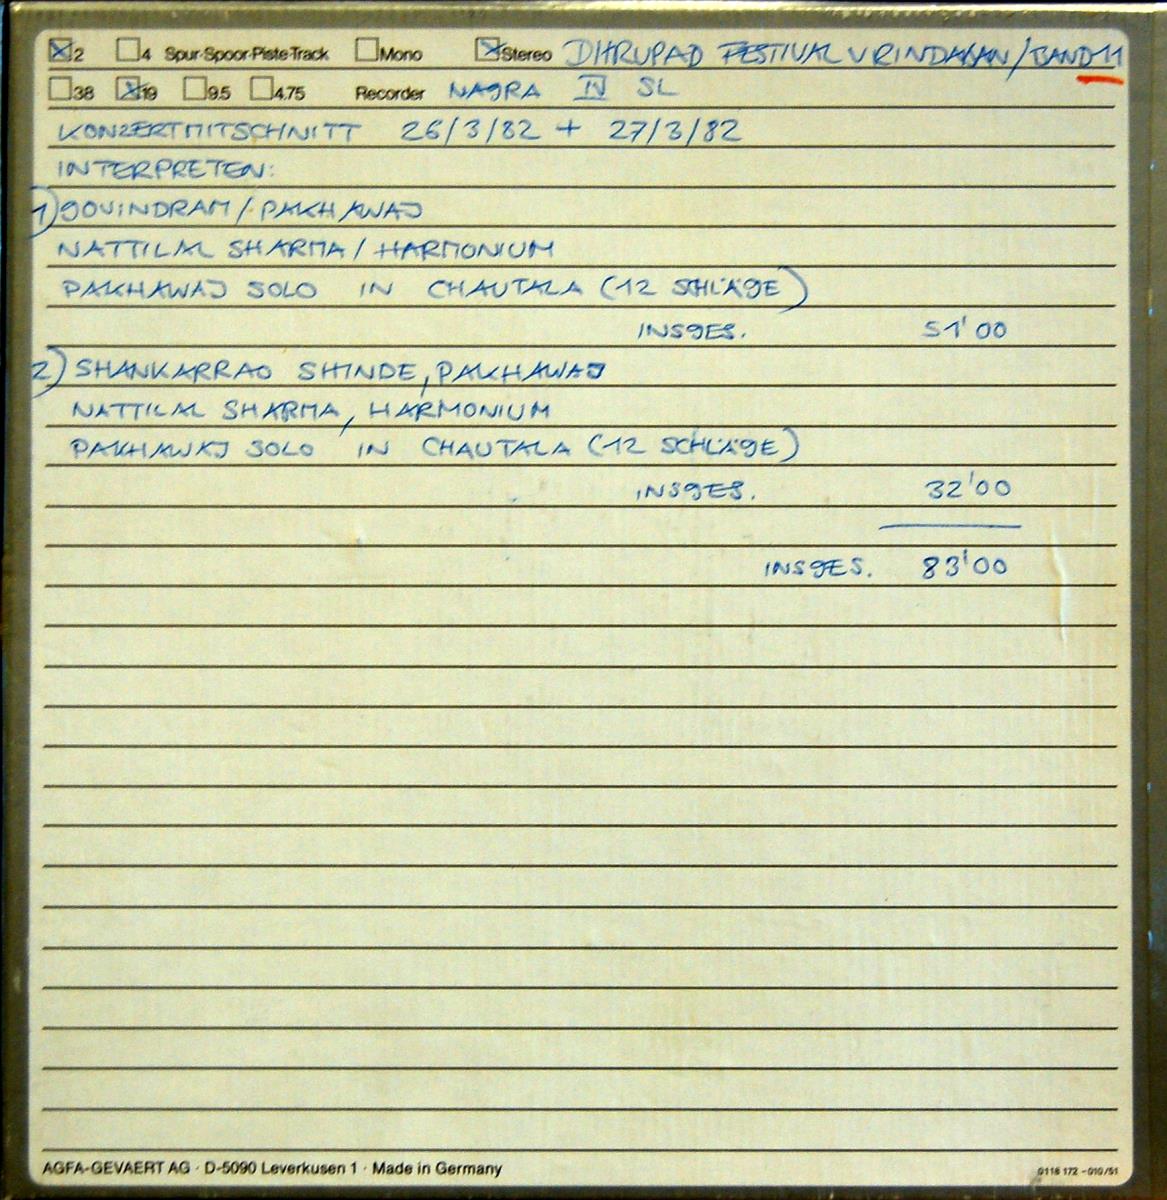 ☒2 ☐4 Spur-Spoor-Piste-Track ☐Mono ☒Stereo DHRUPAD FESTIVAL VRINDABAN/BAND 11
☐38 ☒19 ☐9.5 ☐4.75 Recorder NAGRA IV SL
KONZERTMITSCHNITT 26/3/82 + 27/3/82
INTERPRETEN:
1) GOVINDRAM/PAKHAWAJ
NATTILAL SHARMA/HARMONIUM
PAKHAWAJ SOLO IN CHAUTALA (12 SCHLÄGE)
INSGES. 51'00
2) SHANKARRAO SHINDE, PAKHAWAJ
NATTILAL SHARMA, HARMONIUM
PAKHAWAJ SOLO IN CHAUTALA (12 SCHLÄGE)
INSGES. 32'00
INSGES. 83'00
AGFA-GEVAERT AG · D-5090 Leverkusen 1 · Made in Germany
0116 172 - 010/51